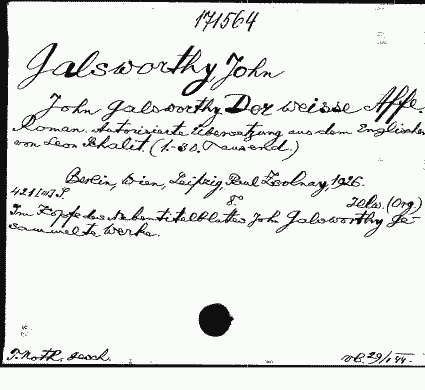 171564
Galsworthy, John
John Galsworthy. Der weisse Affe.
Roman. Autorisierte Übersetzung aus dem Englischen
von Leon Schalit. (1.-30. Tausend.)
Berlin, Wien, Leipzig, Paul Zsolnay, 1926.
421 [III] S. 8. Hlw. (Org.)
Im Kopfe des Nebentitelblattes John Galsworthy Ge-
sammelte Werke.
gesch.